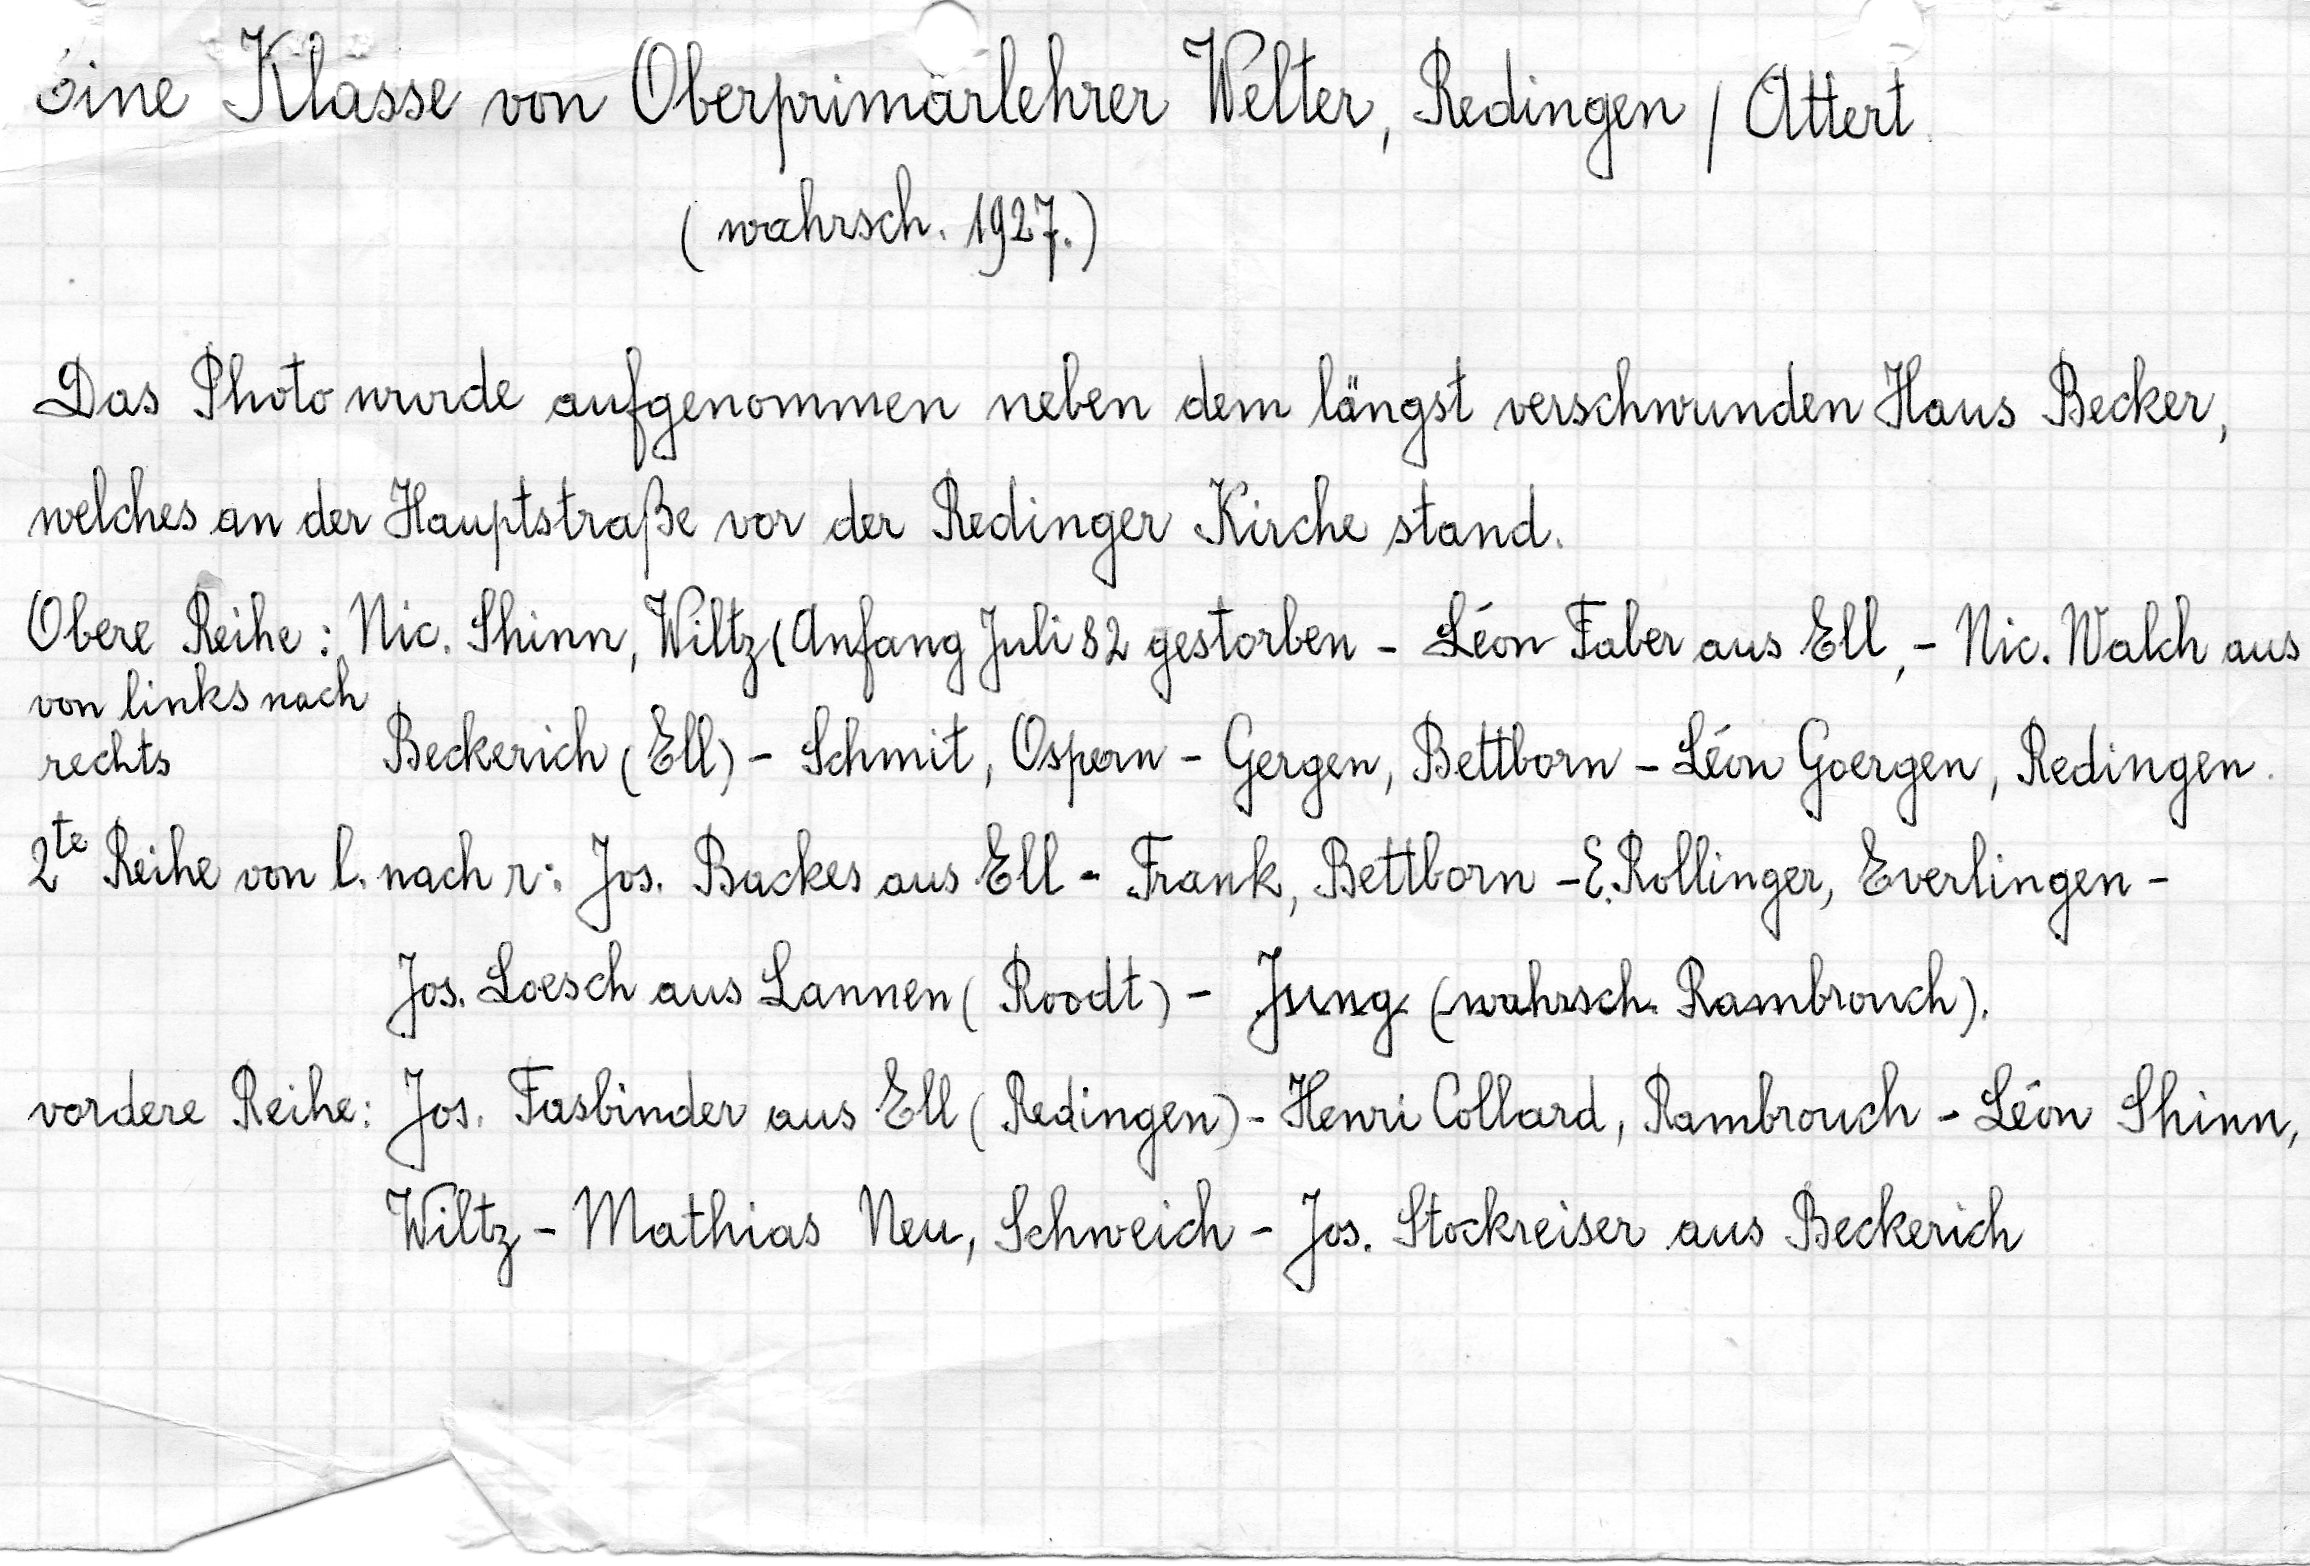 Eine Klasse von Oberprimärlehrer Welter, Redingen / Attert.
(wahrsch. 1927.)
Das Photo wurde aufgenommen neben dem längst verschwunden Haus Becker,
welches an der Hauptstraße vor der Redinger Kirche stand.
Obere Reihe: Nic. Shinn, Wiltz (Anfang Juli 82 gestorben - Léon Faber aus Ell, - Nic. Walch aus
von links nach
rechts Beckerich (Ell) - Schmit, Ospern - Gergen, Bettborn - Léon Goergen, Redingen.
2te Reihe von l. nach r: Jos. Backes aus Ell - Frank, Bettborn - E. Rollinger, Everlingen -
Jos. Loesch aus Lannen (Roodt) - Jung (wahrsch. Rambrouch).
vordere Reihe: Jos. Fasbinder aus Ell (Redingen) - Henri Collard, Rambrouch - Léon Shinn,
Wiltz - Mathias Neu, Schweich - Jos. Stockreiser aus Beckerich